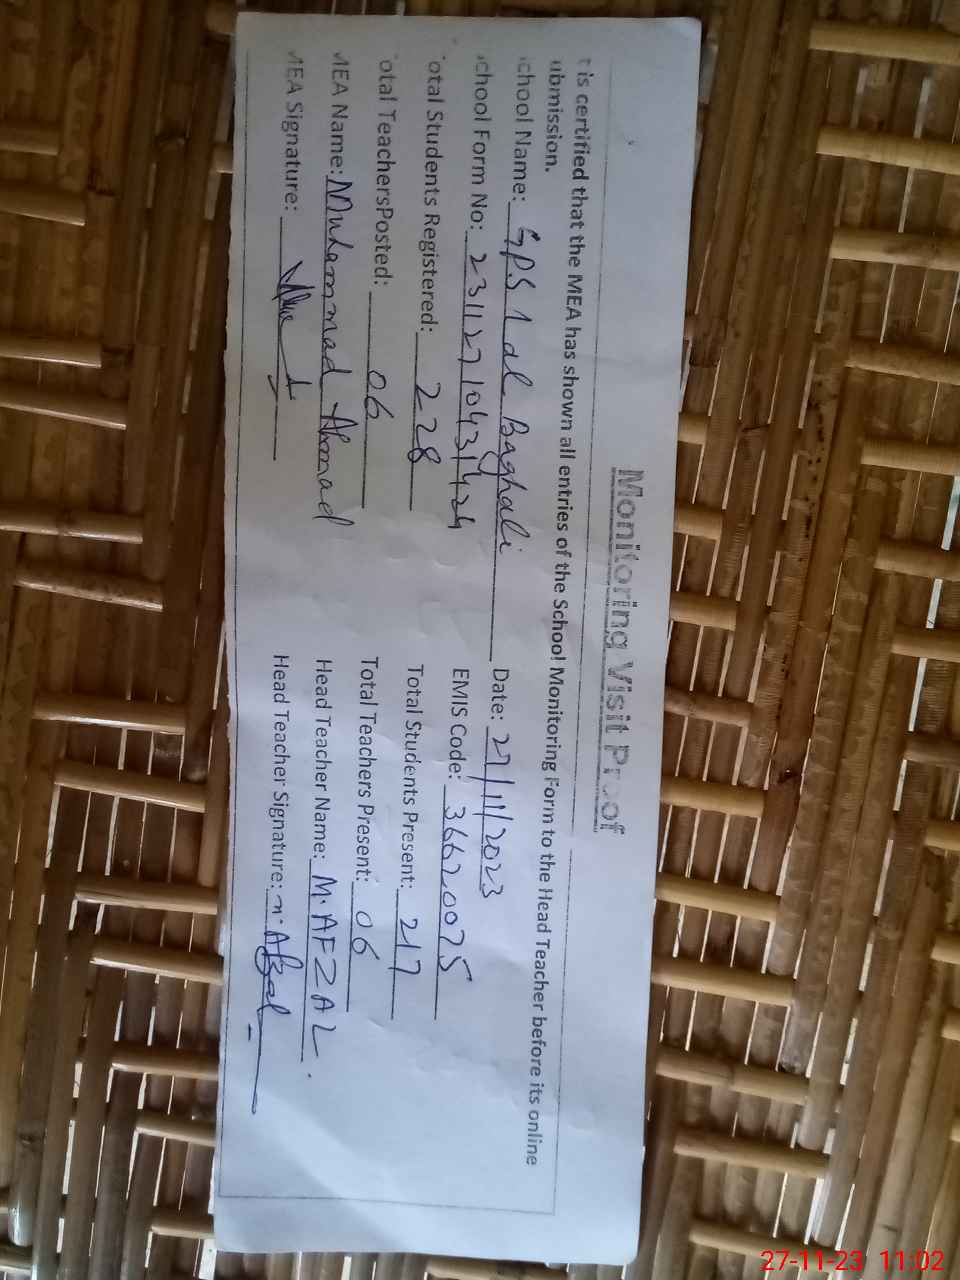 Monitoring Visit Proof
t is certified that the MEA has shown all entries of the School Monitoring Form to the Head Teacher before its online
ubmission.
chool Name: GPS 1 dl Baghali Date: 27/11/2023
chool Form No: 23112710431424 EMIS Code: 36620075
otal Students Registered: 228 Total Students Present: 217
otal TeachersPosted: 06 Total Teachers Present: 06
MEA Name: Muhammad Ahmad Head Teacher Name: M. AFZAL.
MEA Signature: Head Teacher Signature: M. Afzal
27-11-23 11:02